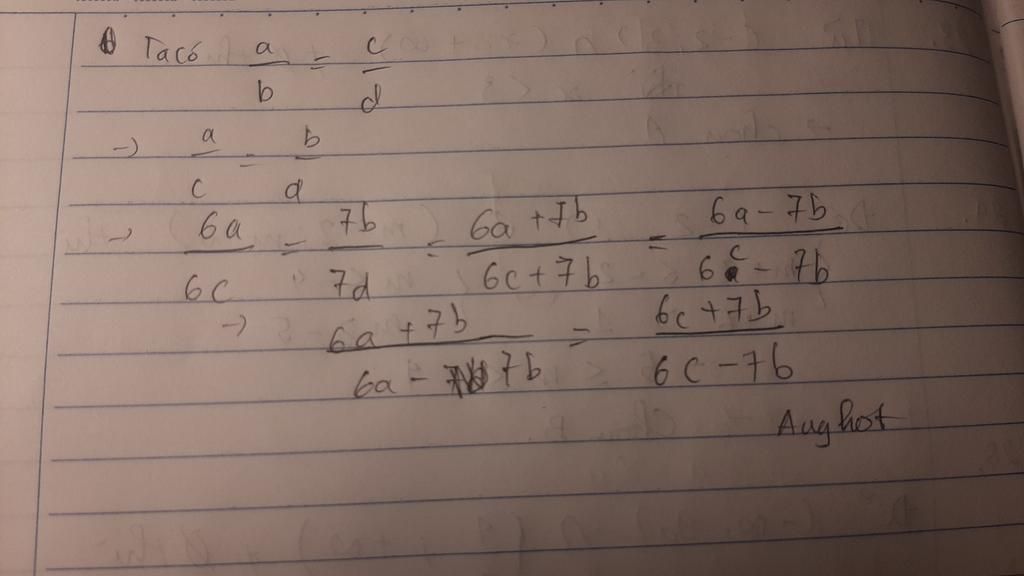 Ta có a/b = c/d
→ a/c = b/d
→ 6a/6c = 7b/7d = 6a + 7b/6c + 7b = 6a - 7b/6c - 7b
→ 6a + 7b/6a - 7b = 6c + 7b/6c - 7b
Aughot